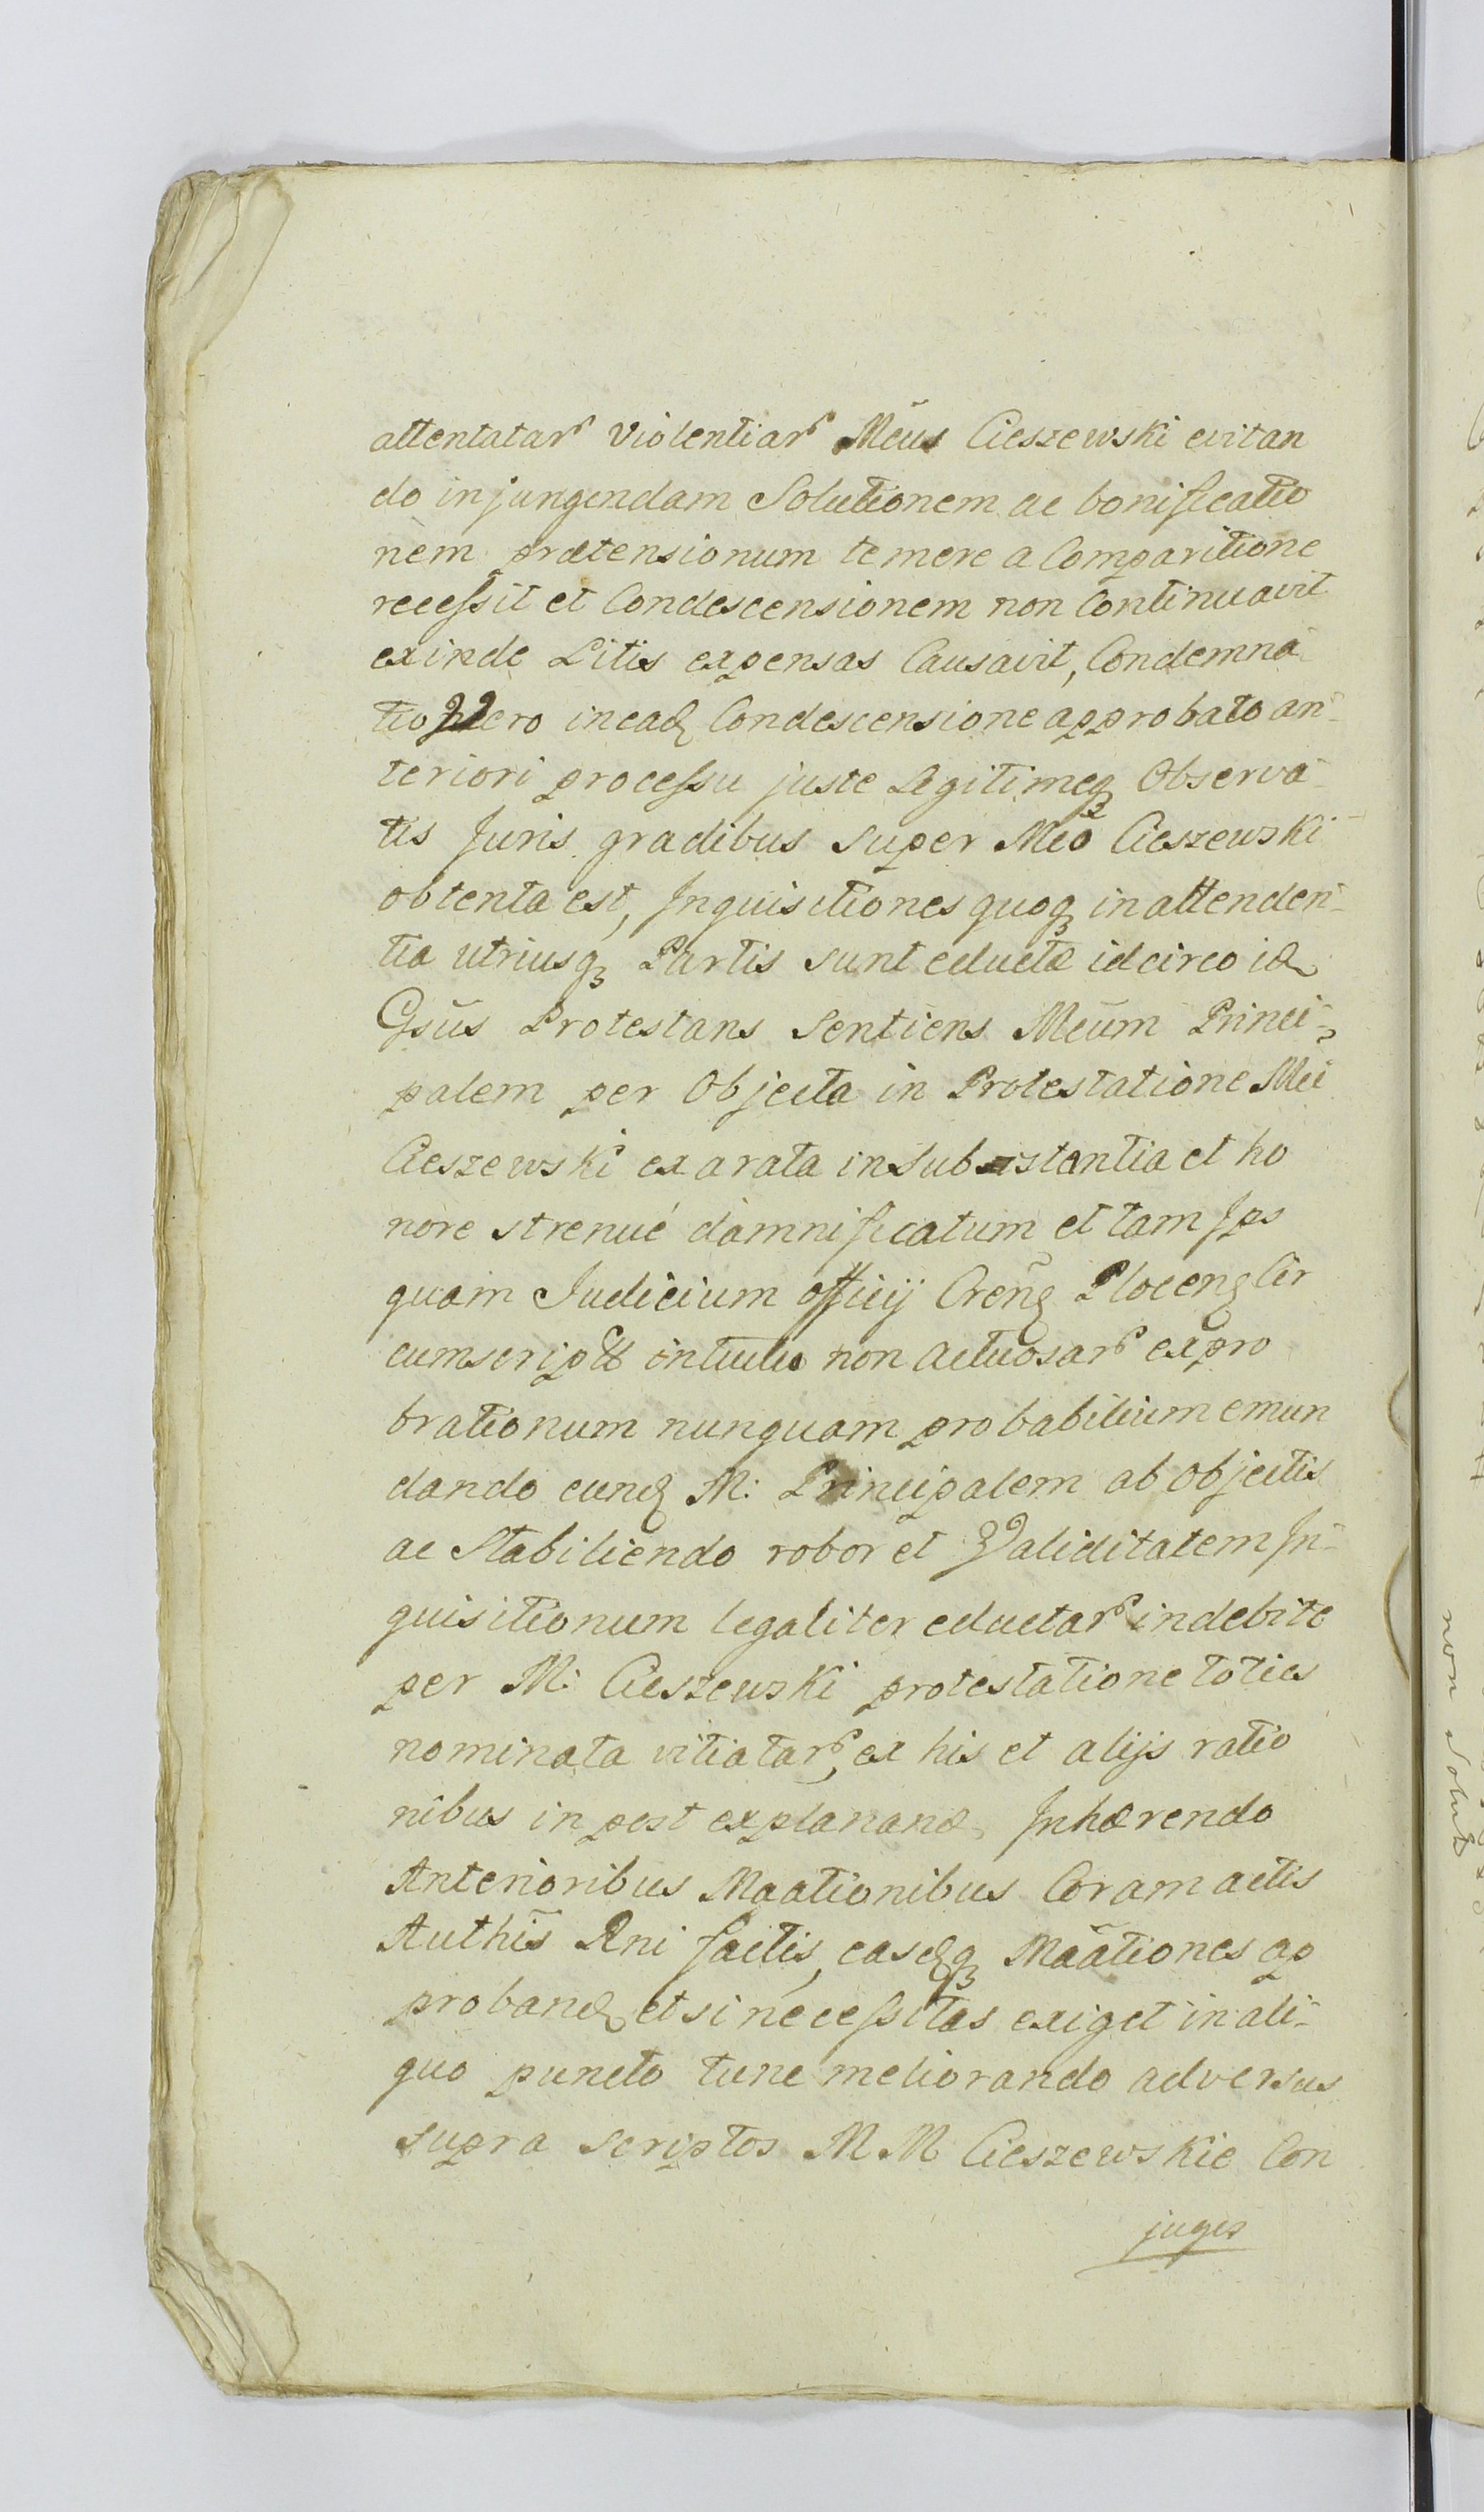 attentatarꝭ violentiarꝭ Mẽus Cieszewski evitan
do injungendam Solutionem ac bonificatio
nem prætensionum temere a Comparitione
recessit et Condescensionem non Continuavit
exinde Litis expensas Causavit, Condemna-
tio vero in eadꝫ Condescensione approbato an-
teriori processu juste Legitimeqꝫ Observa-
tis Juris gradibus super Mẽo Cieszewski
obtenta est, Inquisitiones quoqꝫ in attenden-
tia utriusqꝫ Partis sunt eductæ idcirco id
Gsũs Protestans Sentiens Mẽum Princi-
palem per Objecta in Protestatione Mei
Cieszewski exarata in Substantia et ho
nore strenué damnificatum et tam Ips
quam Judicium officij Crenꝫ Plocenꝫ Cir
cumscript intuitu non actuosarꝭ expro
brationum nunquam probabilium emun
dando eundꝫ M: Principalem ab objectis
ac Stabiliendo robor et Validitatem In-
quisitionum legaliter eductarꝭ indebite
per M: Cieszewski protestatione toties
nominata vitiatarꝭ, ex his et alijs ratio
nibus in post explanand, Inhærendo
Anterioribus Maãtionibus Coram actis
Authĩs Rni factis, easdqꝫ Maãtiones ap
proband et si necessitas exiget in ali-
quo puncto tunc meliorando adversus
supra scriptos M M Cieszewskie Con
juges
non Solut